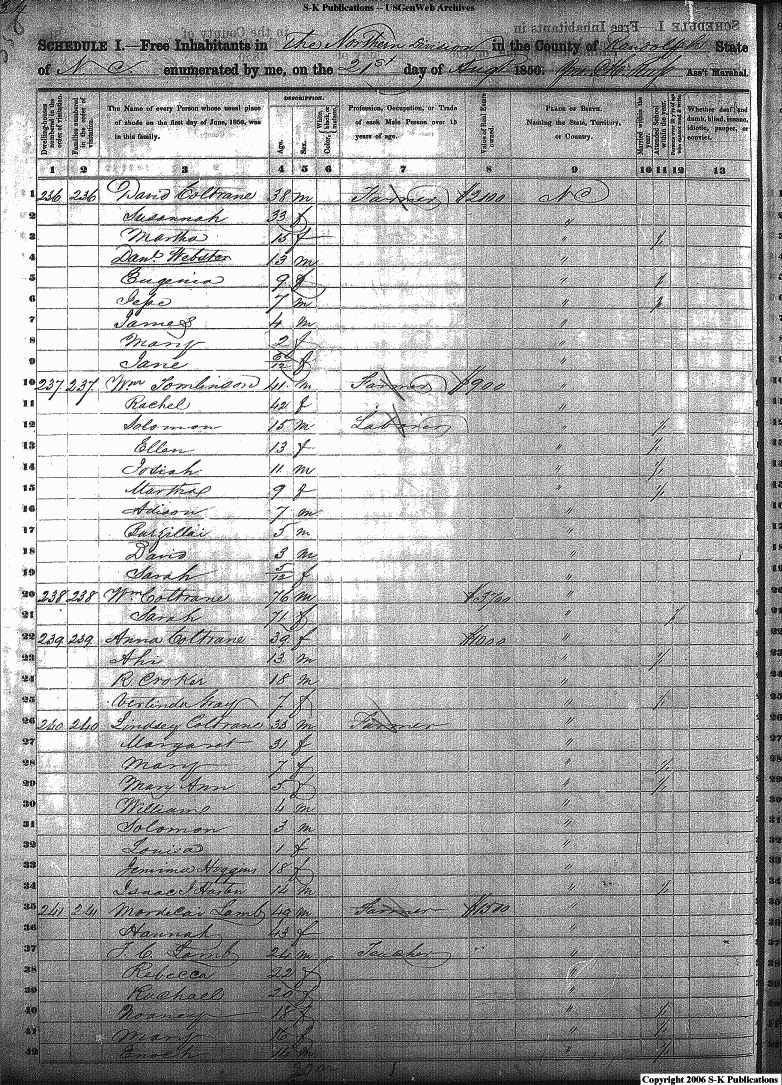 S-K Publications – USGenWeb Archives
SCHEDULE I.—Free Inhabitants in The Northern Division in the County of Randolph State
of N C. enumerated by me, on the 21st day of Augt 1850. Ass't Marshal.
Dwelling-houses numbered in the order of visitation.
Families numbered in the order of visitation.
The Name of every Person whose usual place of abode on the first day of June, 1850, was in this family.
DESCRIPTION.
Age.
Sex.
Profession, Occupation, or Trade of each Male Person over 15 years of age.
Value of Real Estate owned.
PLACE OF BIRTH. Naming the State, Territory, or Country.
Married within the year.
Attended School within the year.
Whether deaf and dumb, blind, insane, idiotic, pauper, or convict.
1 2 3 4 5 6 7 8 9 10 11 12 13
1 236 236 David Coltrane 38 m Farmer $2100 N C
2 Susannah 33 f "
3 Martha 15 f " /
4 Danl. Webster 13 m "
5 Eugenia 9 f " /
6 7 m " /
7 James 4 m "
8 Mary 2 f "
9 Jane /12 f "
10 237 237 Wm Tomlinson 41 m Farmer $900 "
11 Rachel 42 f "
12 Solomon 15 m Laborer " /
13 Ellen 13 f " /
14 Josiah 11 m " /
15 Martha 9 f " /
16 Adison 7 m "
17 5 m "
18 David 3 m "
19 Sarah 5/12 f "
20 238 238 Wm Coltrane 76 m "
21 Sarah 71 f " /
22 239 239 Anna Coltrane 39 f $1000 "
23 Ahi 13 m " /
24 R Croker 18 m "
25 Verlinda Gray 7 f " /
26 240 240 Lindsey Coltrane 33 m Farmer "
27 Margaret 31 f "
28 Mary 7 f " /
29 Mary Ann 5 f " /
30 William 4 m "
31 Solomon 3 m "
32 Louisa 1 f "
33 Jemima Hoggins 18 f "
34 Isaac J Harten 14 m " /
35 241 241 Mordecai Lamb 49 m Farmer $1500 "
36 Hannah 43 f "
37 T. C. Lamb 24 m Teacher "
38 Rebecca 22 f "
39 Rachael 20 f "
40 18 f " /
41 Mary 16 f " /
42 Enoch 14 m " /
20 m
Copyright 2006 S-K Publications